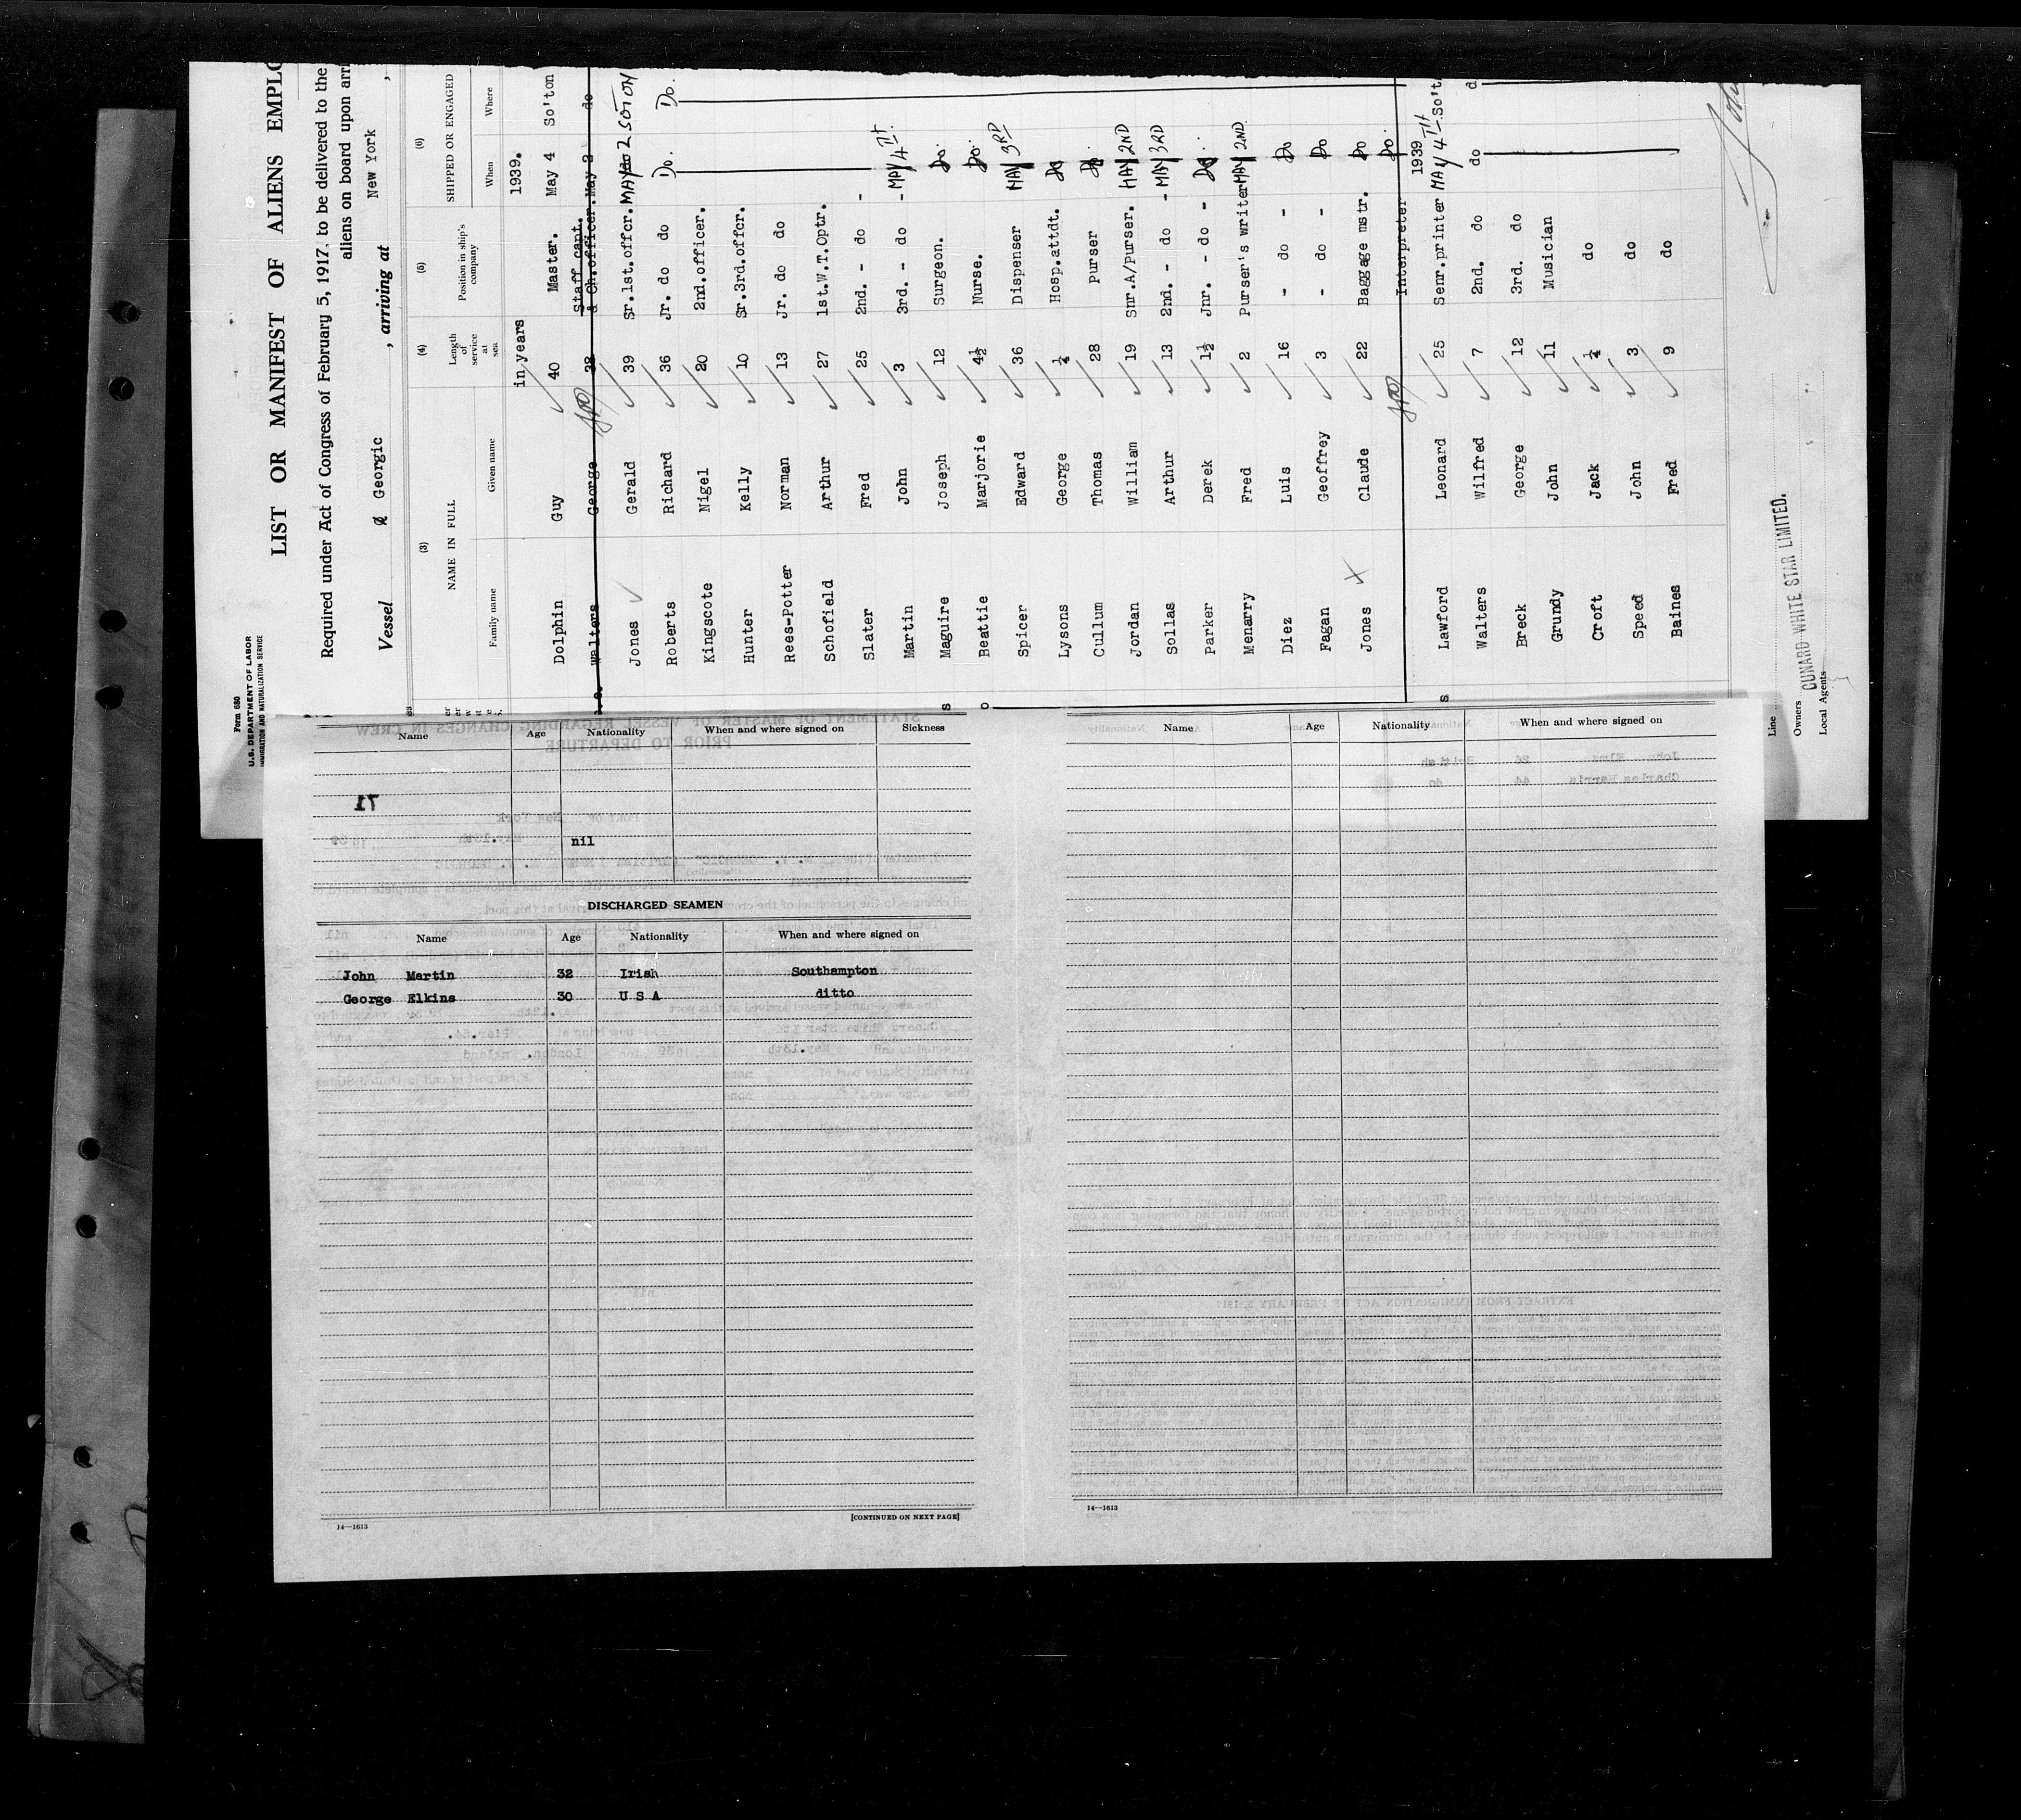 Form 680
U.S. DEPARTMENT OF LABOR
IMMIGRATION AND NATURALIZATION SERVICE
LIST OR MANIFEST OF ALIENS EMPLO
Required under Act of Congress of February 5, 1917, to be delivered to the
aliens on board upon arri
Vessel Georgic , arriving at New York ,
(3) (4) (5) (6)
NAME IN FULL Length of service at sea Position in ship's company SHIPPED OR ENGAGED
Family name Given name When Where
in years 1939.
Dolphin Guy 40 Master. May 4 So'ton
Walters George 38 Staff capt. & Ch.officer. May 2 do
Jones Gerald 39 Sr.1st.offcr. MAY 2 SOTON
Roberts Richard 36 Jr. do do Do. Do.
Kingscote Nigel 20 2nd.officer.
Hunter Kelly 10 Sr.3rd.offcr.
Rees-Potter Norman 13 Jr. do do
Schofield Arthur 27 1st.W.T.Optr.
Slater Fred 25 2nd. - do -
Martin John 3 3rd. - do - MAY 4TH.
Maguire Joseph 12 Surgeon. Do.
Beattie Marjorie 4½ Nurse. Do.
Spicer Edward 36 Dispenser MAY 3RD
Lysons George ¼ Hosp.attdt. Do
Cullum Thomas 28 Purser Do.
Jordan William 19 Snr.A/Purser. MAY 2ND
Sollas Arthur 13 2nd. - do - MAY 3RD
Parker Derek 1½ Jnr. - do - Do.
Menarry Fred 2 Purser's writer MAY 2ND.
Diez Luis 16 - do - Do
Fagan Geoffrey 3 - do - Do
Jones Claude 22 Baggage mstr. Do
Interpreter Do.
1939
Lawford Leonard 25 Senr.printer MAY 4TH So't
Walters Wilfred 7 2nd. do do d
Breck George 12 3rd. do
Grundy John 11 Musician
Croft Jack ¼ do
Speed John 3 do
Baines Fred 9 do
Line
Owners CUNARD WHITE STAR LIMITED.
Local Agents
Name Age Nationality When and where signed on Sickness
71
nil
DISCHARGED SEAMEN
Name Age Nationality When and where signed on
John Martin 32 Irish Southampton
George Elkins 30 U S A ditto
14—1613 [CONTINUED ON NEXT PAGE]
Name Age Nationality When and where signed on
14—1613